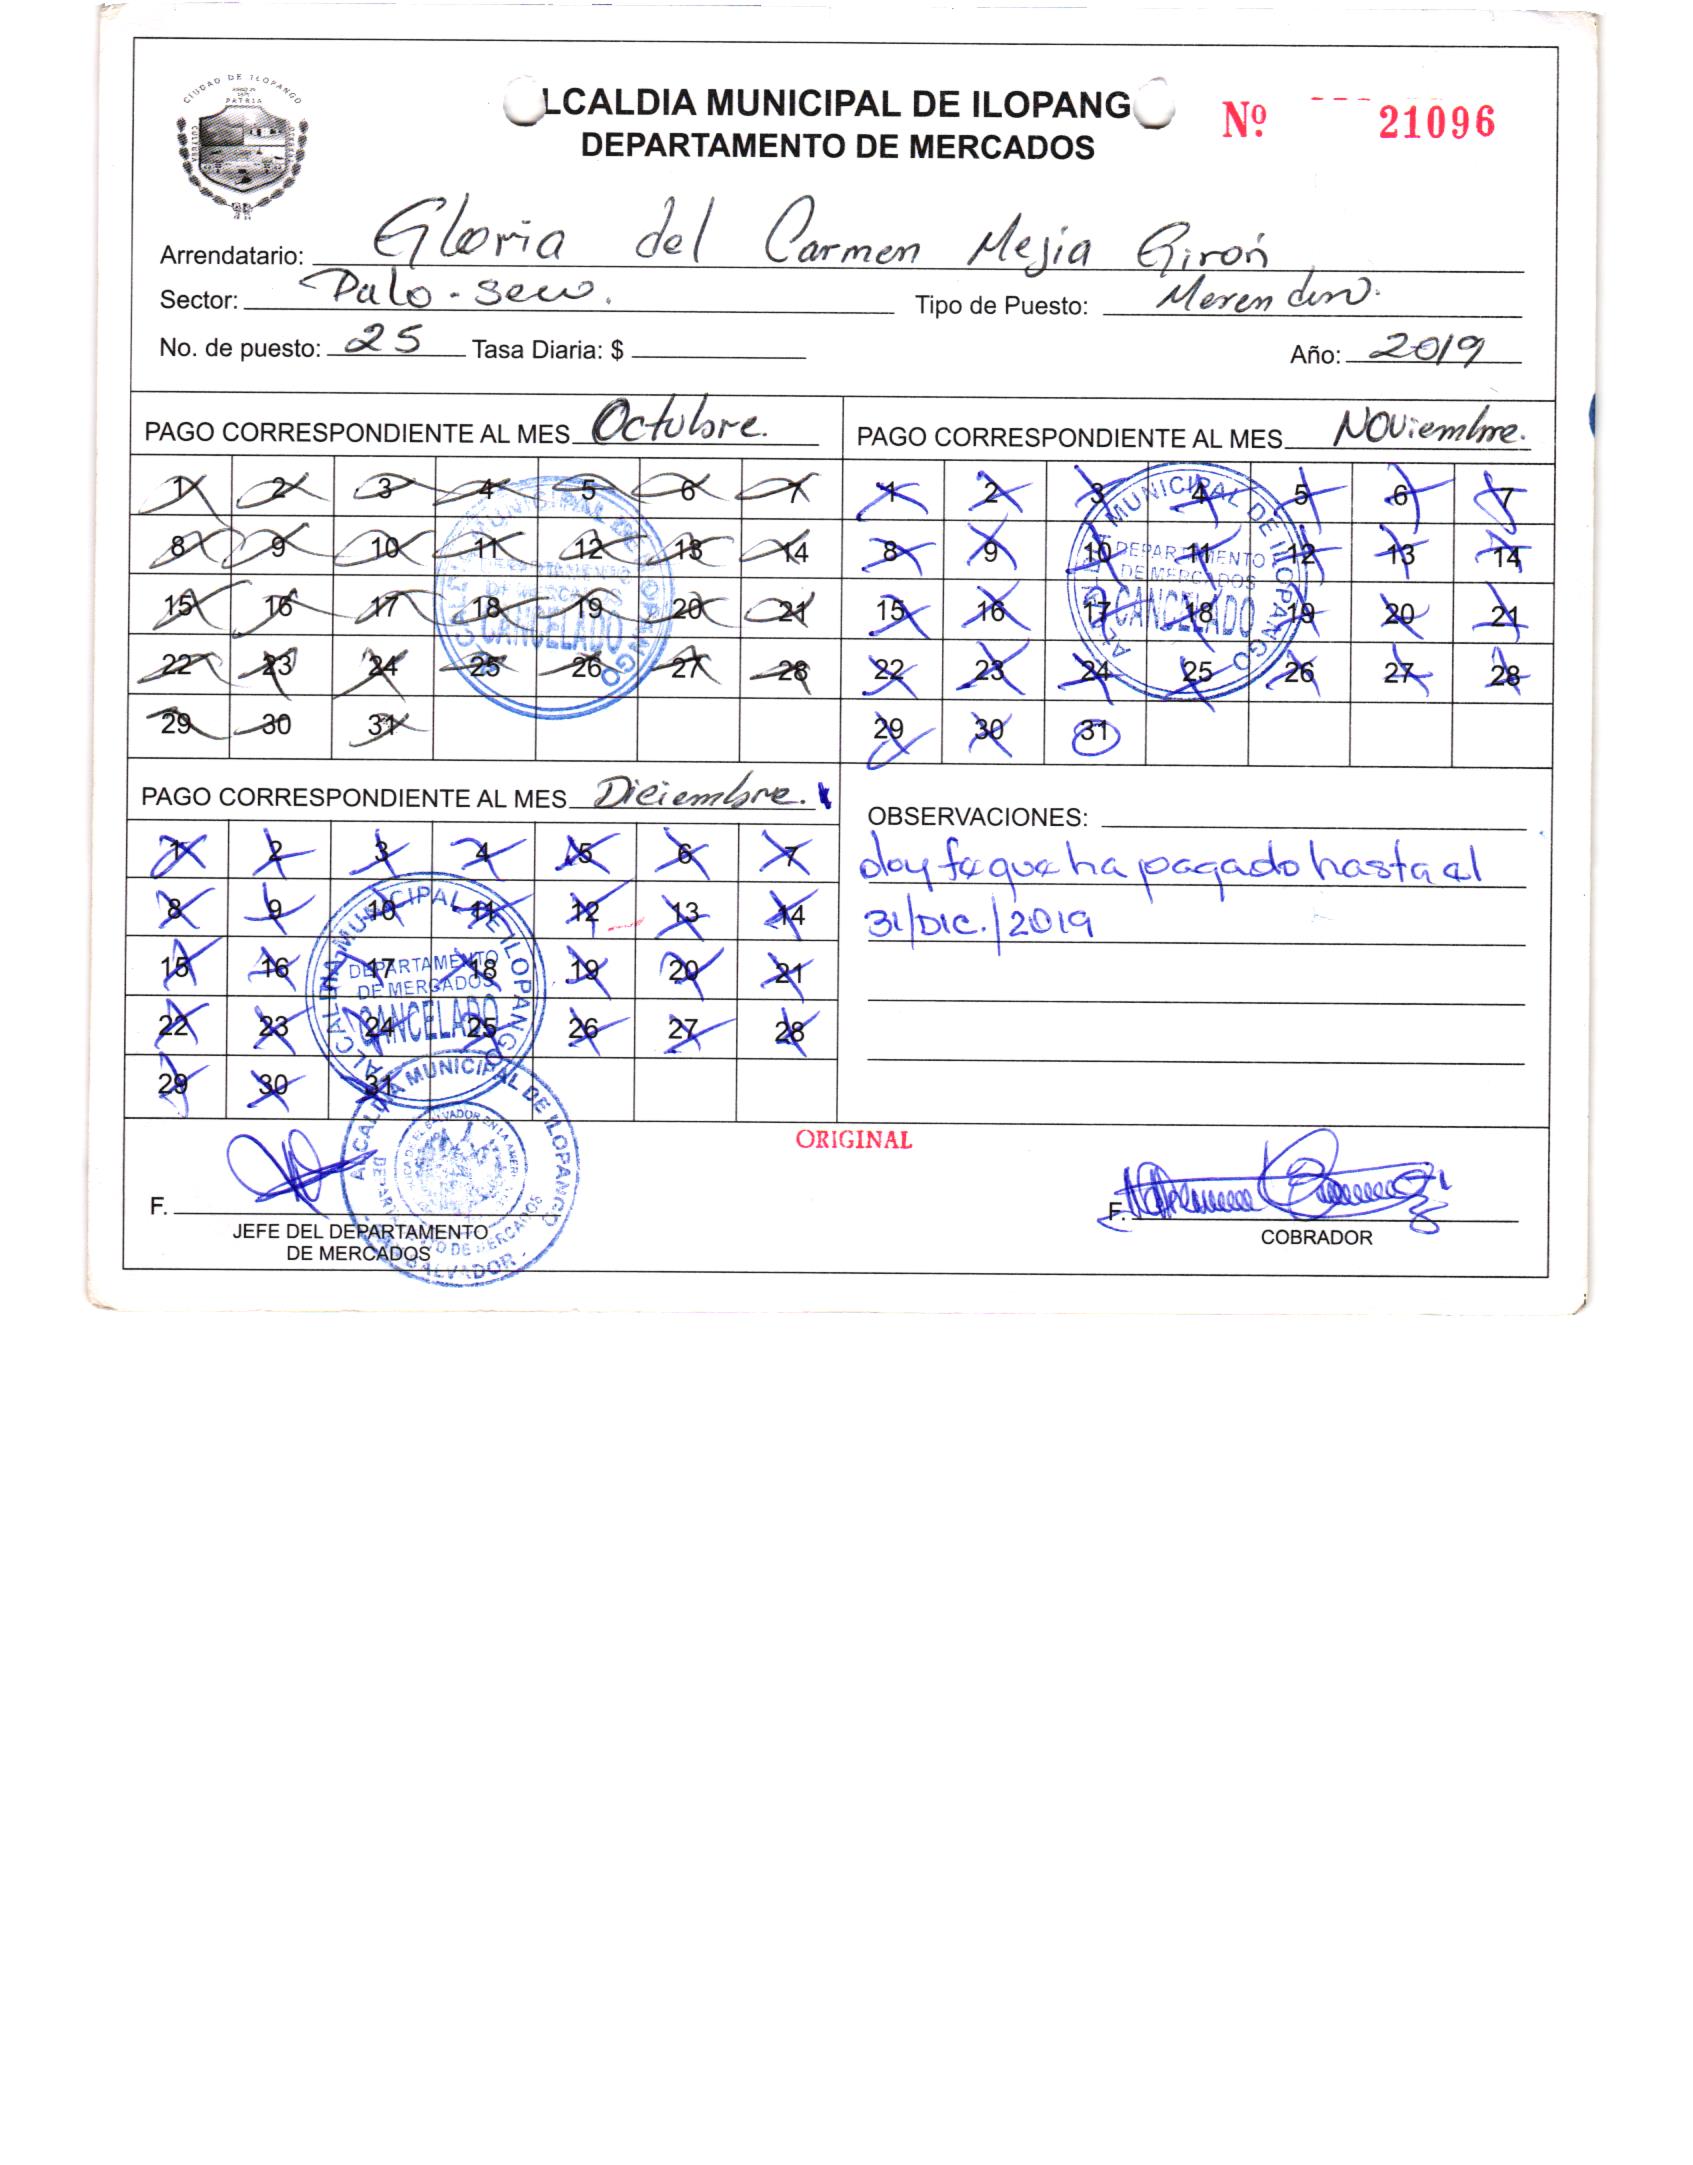 CIUDAD DE ILOPANGO
PATRIA
CULTURA
LCALDIA MUNICIPAL DE ILOPANG
DEPARTAMENTO DE MERCADOS
Nº 21096
Arrendatario: Gloria del Carmen Mejia Girón
Sector: Palo-seco. Tipo de Puesto: Merendero.
No. de puesto: 25 Tasa Diaria: $ Año: 2019
PAGO CORRESPONDIENTE AL MES Octubre.
1 2 3 4 5 6 7
8 9 10 11 12 13 14
15 16 17 18 19 20 21
22 23 24 25 26 27 28
29 30 31
ALCALDIA MUNICIPAL DE ILOPANGO
DEPARTAMENTO
DE MERCADOS
CANCELADO
PAGO CORRESPONDIENTE AL MES NOViembre.
1 2 3 4 5 6 7
8 9 10 11 12 13 14
15 16 17 18 19 20 21
22 23 24 25 26 27 28
29 30 31
ALCALDIA MUNICIPAL DE ILOPANGO
DEPARTAMENTO
DE MERCADOS
CANCELADO
PAGO CORRESPONDIENTE AL MES Diciembre.
1 2 3 4 5 6 7
8 9 10 11 12 13 14
15 16 17 18 19 20 21
22 23 24 25 26 27 28
29 30 31
ALCALDIA MUNICIPAL DE ILOPANGO
DEPARTAMENTO
DE MERCADOS
CANCELADO
OBSERVACIONES:
doy fe que ha pagado hasta el
31/DIC./2019
ORIGINAL
F.
JEFE DEL DEPARTAMENTO
DE MERCADOS
ALCALDIA MUNICIPAL DE ILOPANGO
DEPARTAMENTO DE MERCADOS
SALVADOR
F.
COBRADOR